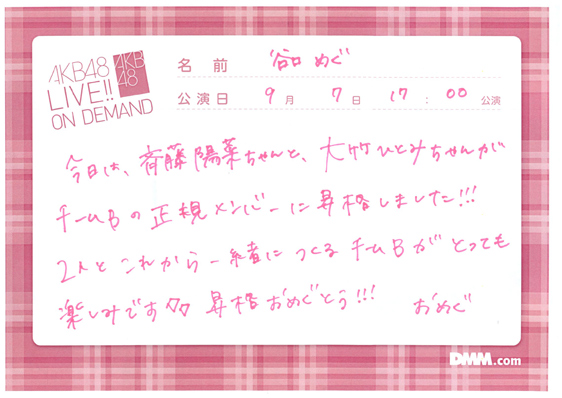 AKB48
LIVE!!
ON DEMAND
AKB
48
名前 谷口 めぐ
公演日 9月 7日 17:00 公演
今日は、斉藤陽菜ちゃんと、大竹ひとみちゃんが
チームBの正規メンバーに昇格しました!!!
2人とこれから一緒につくるチームBがとっても
楽しみです 昇格おめでとう!!! おめぐ
DMM.com